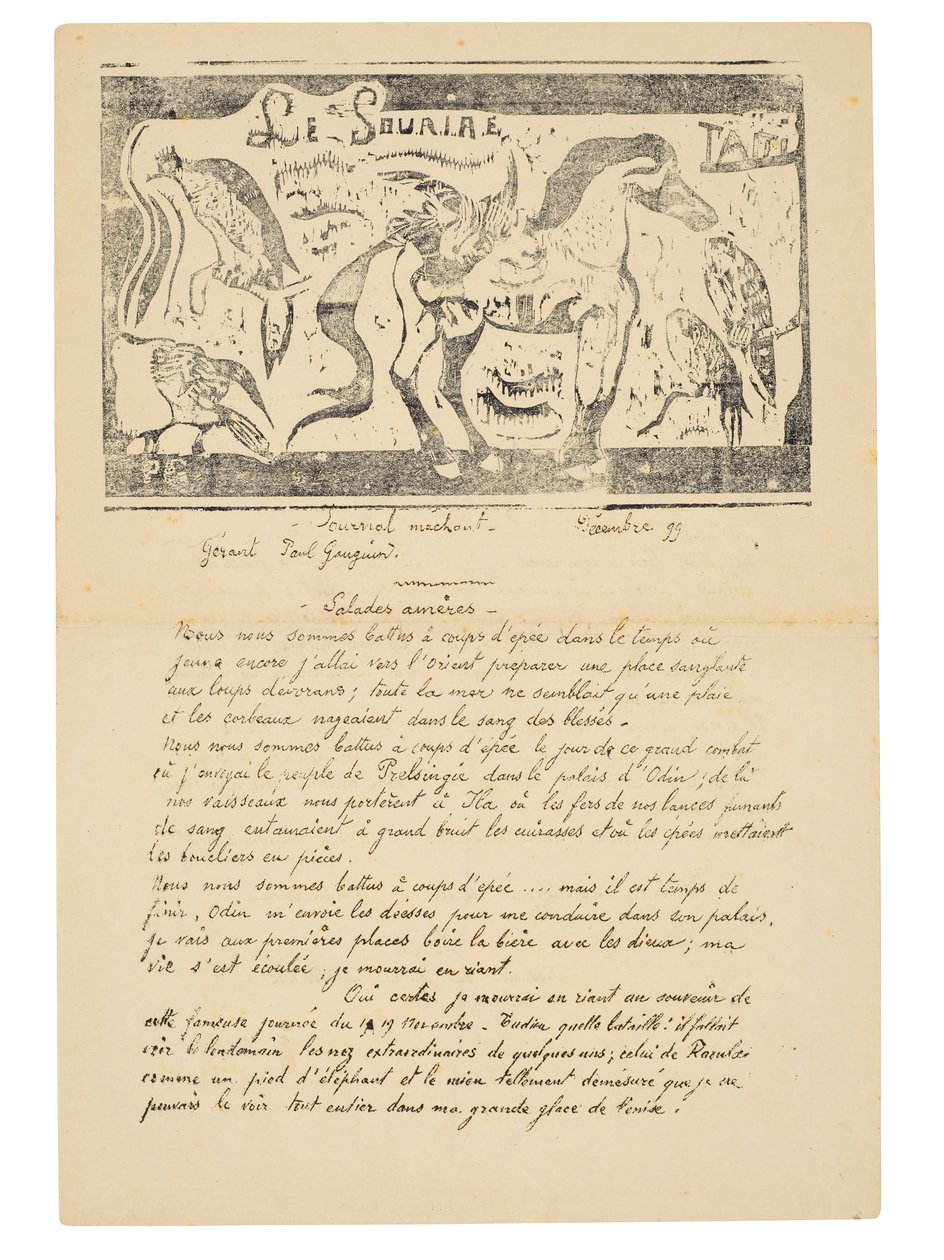 LE SOURIRE
TAITI
- Journal méchant - Décembre 99
Gérant Paul Gauguin.
- Salades amères -
Nous nous sommes battus à coups d'épée dans le temps où
jeune encore j'allai vers l'Orient préparer une place sanglante
aux loups dévorans; toute la mer ne semblait qu'une plaie
et les corbeaux nageaient dans le sang des blessés.
Nous nous sommes battus à coups d'épée le jour de ce grand combat
où j'envoyai le peuple de Prelsingie dans le palais d'Odin; de là
nos vaisseaux nous portèrent à Ila où les fers de nos lances fumants
de sang entamaient à grand bruit les cuirasses et où les épées mettaient
les boucliers en pièces.
Nous nous sommes battus à coups d'épée .... mais il est temps de
finir, Odin m'envoie les déesses pour me conduire dans son palais,
je vais aux premières places boire la bière avec les dieux; ma
vie s'est écoulée; je mourrai en riant.
Oui certes je mourrai en riant au souvenir de
cette fameuse journée du 19 Novembre - Tudieu quelle bataille! il fallait
voir le lendemain les nez extraordinaires de quelques uns; celui de
comme un pied d'éléphant et le mien tellement démesuré que je ne
pouvais le voir tout entier dans ma grande glace de Venise.